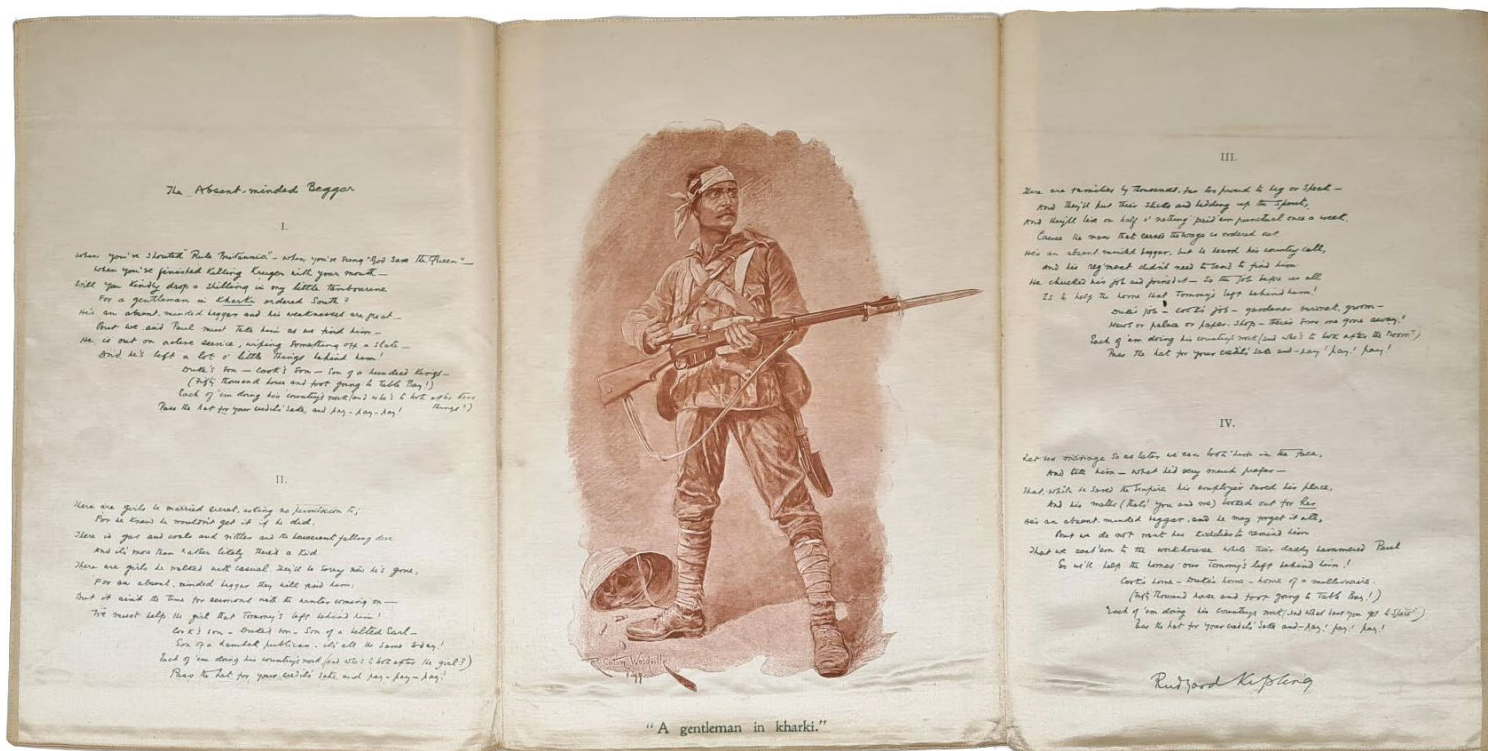 The Absent-minded Beggar
I.
When you've shouted "Rule Britannia" - when you've sung "God Save the Queen" -
When you've finished killing Kruger with your mouth -
Will you kindly drop a shilling in my little tambourine
For a gentleman in Kharki ordered South?
He's an absent-minded beggar and his weaknesses are great -
But we and Paul must take him as we find him -
He is out on active service, wiping something off a slate -
And he's left a lot o' little things behind him!
Duke's son - Cook's son - Son of a hundred Kings -
(Fifty thousand horse and foot going to Table Bay!)
Each of 'em doing his country's work (and who's to look after their
things?)
Pass the hat for your credit's sake, and pay - pay - pay!
II.
There are girls he married secret, asking no permission to,
For he knew he wouldn't get it if he did.
There is gas and coals and vittles and the house-rent falling due
And it's more than rather likely there's a kid
There are girls he walked with casual, they'll be sorry now he's gone,
For an absent-minded beggar they will find him,
But it ain't the time for sermons with the winter coming on -
We must help the girl that Tommy's left behind him!
Cook's son - Duke's son - Son of a belted Earl -
Son of a Lambeth publican - it's all the same today!
Each of 'em doing his country's work (and who's to look after the girl?)
Pass the hat for your credit's sake and pay - pay - pay!
R. Caton Woodville
1899
"A gentleman in kharki."
III.
There are families by thousands, far too proud to beg or speak -
And they'll put their sticks and bedding up the spout,
And they'll live on half o' nothing paid 'em punctual once a week,
Cause the man that earned the wage is ordered out
He's an absent-minded beggar, but he heard his country call,
And his reg'ment didn't need to send to find him
He chucked his job and joined it - So the job before us all
Is to help the home that Tommy's left behind him!
Duke's job - Cook's job - gardener baronet, groom -
Mews or palace or paper-shop - there's some one gone away!
Each of 'em doing his country's work (and who's to look after the room?)
Pass the hat for your credit's sake and - pay! pay! pay!
IV.
Let us manage so as later we can look him in the face,
And tell him - what he'd very much prefer -
That, while he saved the Empire his employer saved his place,
And his mates (that's you and me) looked out for her
He's an absent-minded beggar, and he may forget it all,
But we do not want his kiddies to remind him
That we sent 'em to the workhouse while their daddy hammered Paul
So we'll help the homes our Tommy's left behind him!
Cook's home - Duke's home - home of a millionaire.
(Fifty thousand horse and foot going to Table Bay!)
Each of 'em doing his country's work (and what have you got to spare?)
Pass the hat for your credit's sake and - pay! pay! pay!
Rudyard Kipling